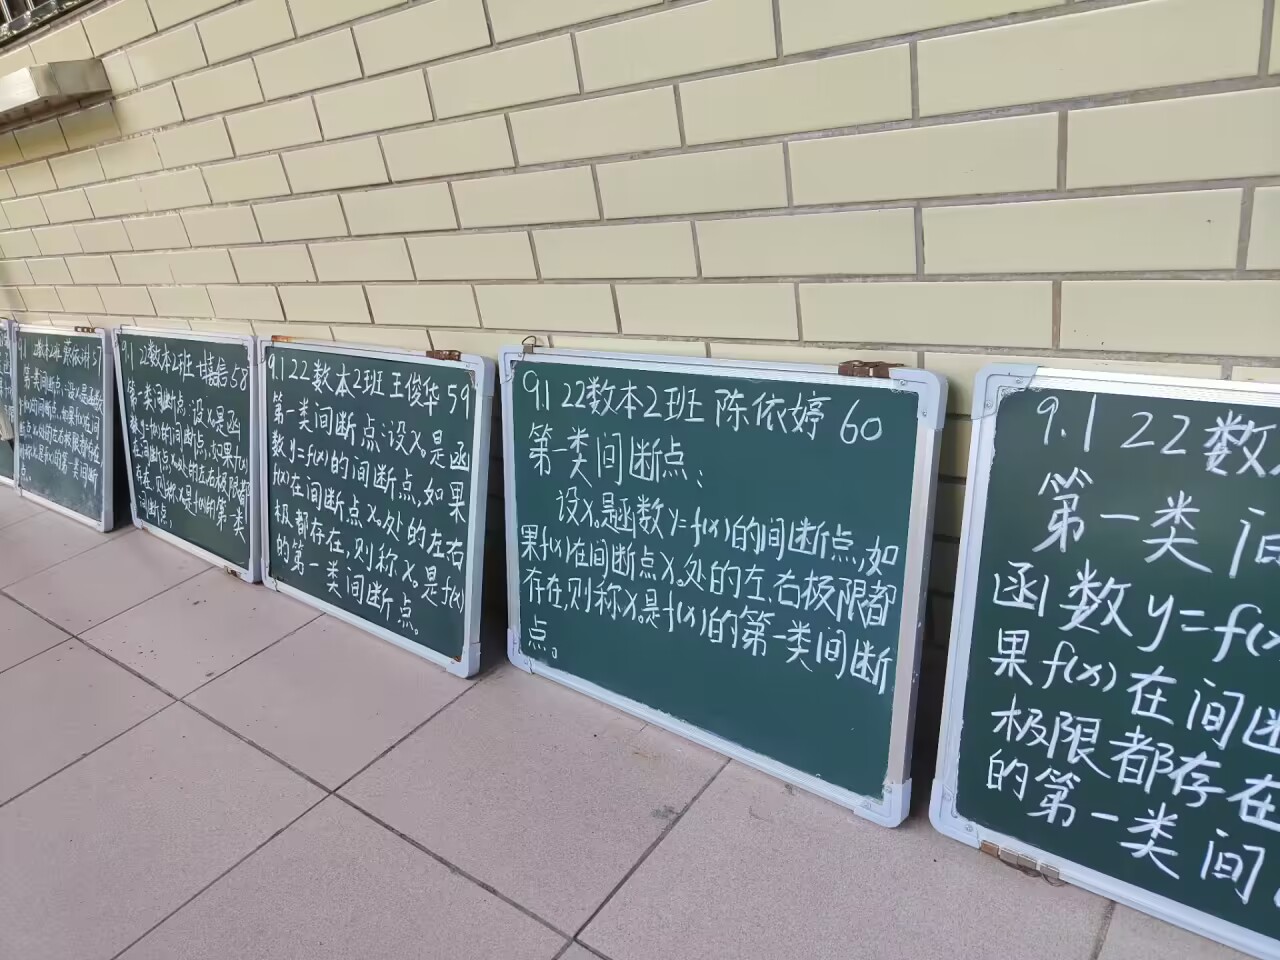 9.1 22数本2班 57
第一类间断点:设x₀是函数
9.1 22数本2班 58
第一类间断点:设x₀是函
数y=f(x)的间断点,如果f(x)
在间断点x₀处的左右极限都
存在,则称x₀是f(x)的第一类
间断点,
9.1 22数本2班 王俊华 59
第一类间断点:设x₀是函
数y=f(x)的间断点,如果
f(x)在间断点x₀处的左右
极都存在,则称x₀是f(x)
的第一类间断点。
9.1 22数本2班 陈依婷 60
第一类间断点:
设x₀是函数y=f(x)的间断点,如
果f(x)在间断点x₀处的左、右极限都
存在,则称x₀是f(x)的第一类间断
点。
9.1 22数
第一类间
函数y=f(x
果f(x)在间断
极限都存在
的第一类间